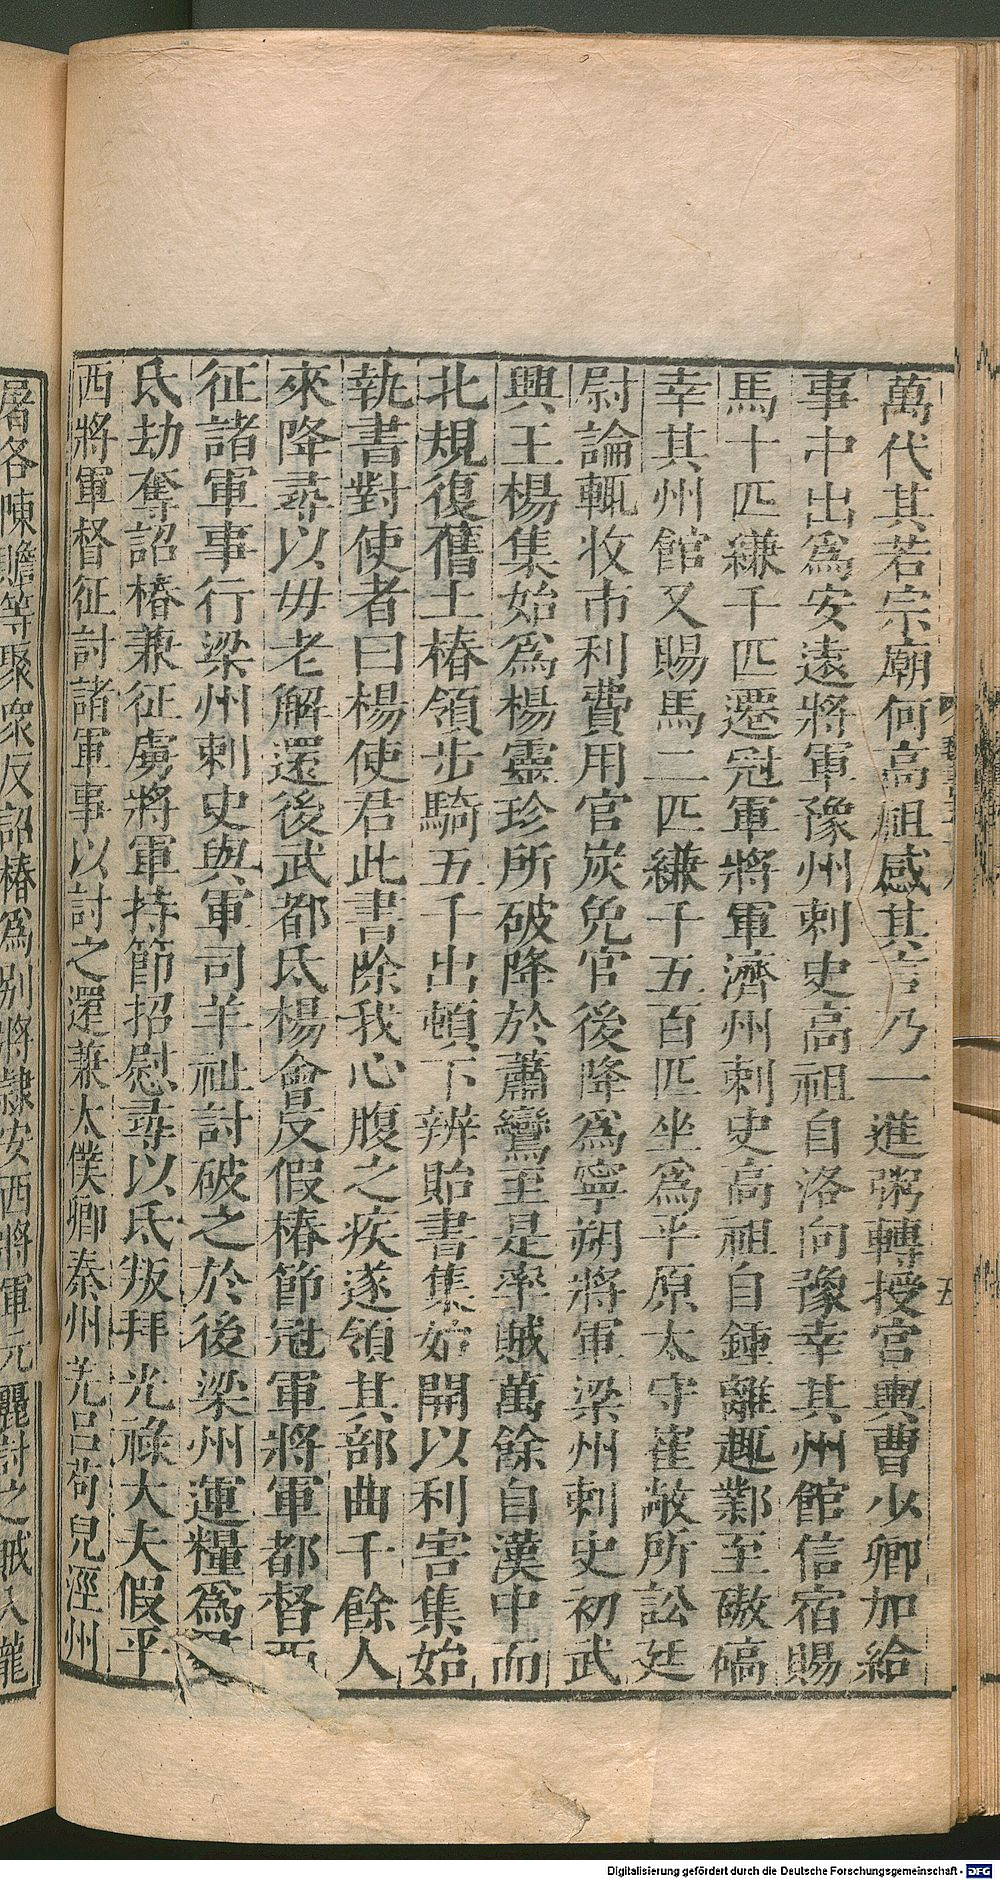 萬代其若宗廟何高祖感其言乃一進粥轉授宮輿曹少卿加給
事中出爲安遠將軍豫州刺史高祖自洛向豫幸其州館信宿賜
馬十匹縑千匹遷冠軍將軍濟州刺史高祖自鍾離趣鄴至碻磝
幸其州館又賜馬二匹縑千五百匹坐爲平原太守崔敞所訟廷
尉論輒收市利費用官炭免官後降爲寧朔將軍梁州刺史初武
興王楊集始爲楊靈珍所破降於蕭鸞至是率賊萬餘自漢中而
北規復舊土椿領步騎五千出頓下辨貽書集始開以利害集始
執書對使者曰楊使君此書除我心腹之疾遂領其部曲千餘人
來降尋以毋老解還後武都氐楊會反假椿節冠軍將軍都督西
征諸軍事行梁州刺史與軍司羊祉討破之於後梁州運糧爲
氐劫奪詔椿兼征虜將軍持節招慰尋以氐叛拜光祿大夫假平
西將軍督征討諸軍事以討之還兼太僕卿秦州羌呂苟兒涇州
屠各陳瞻等聚衆反詔椿爲別將隸安西將軍元麗討之賊入隴
Digitalisierung gefördert durch die Deutsche Forschungsgemeinschaft - DFG